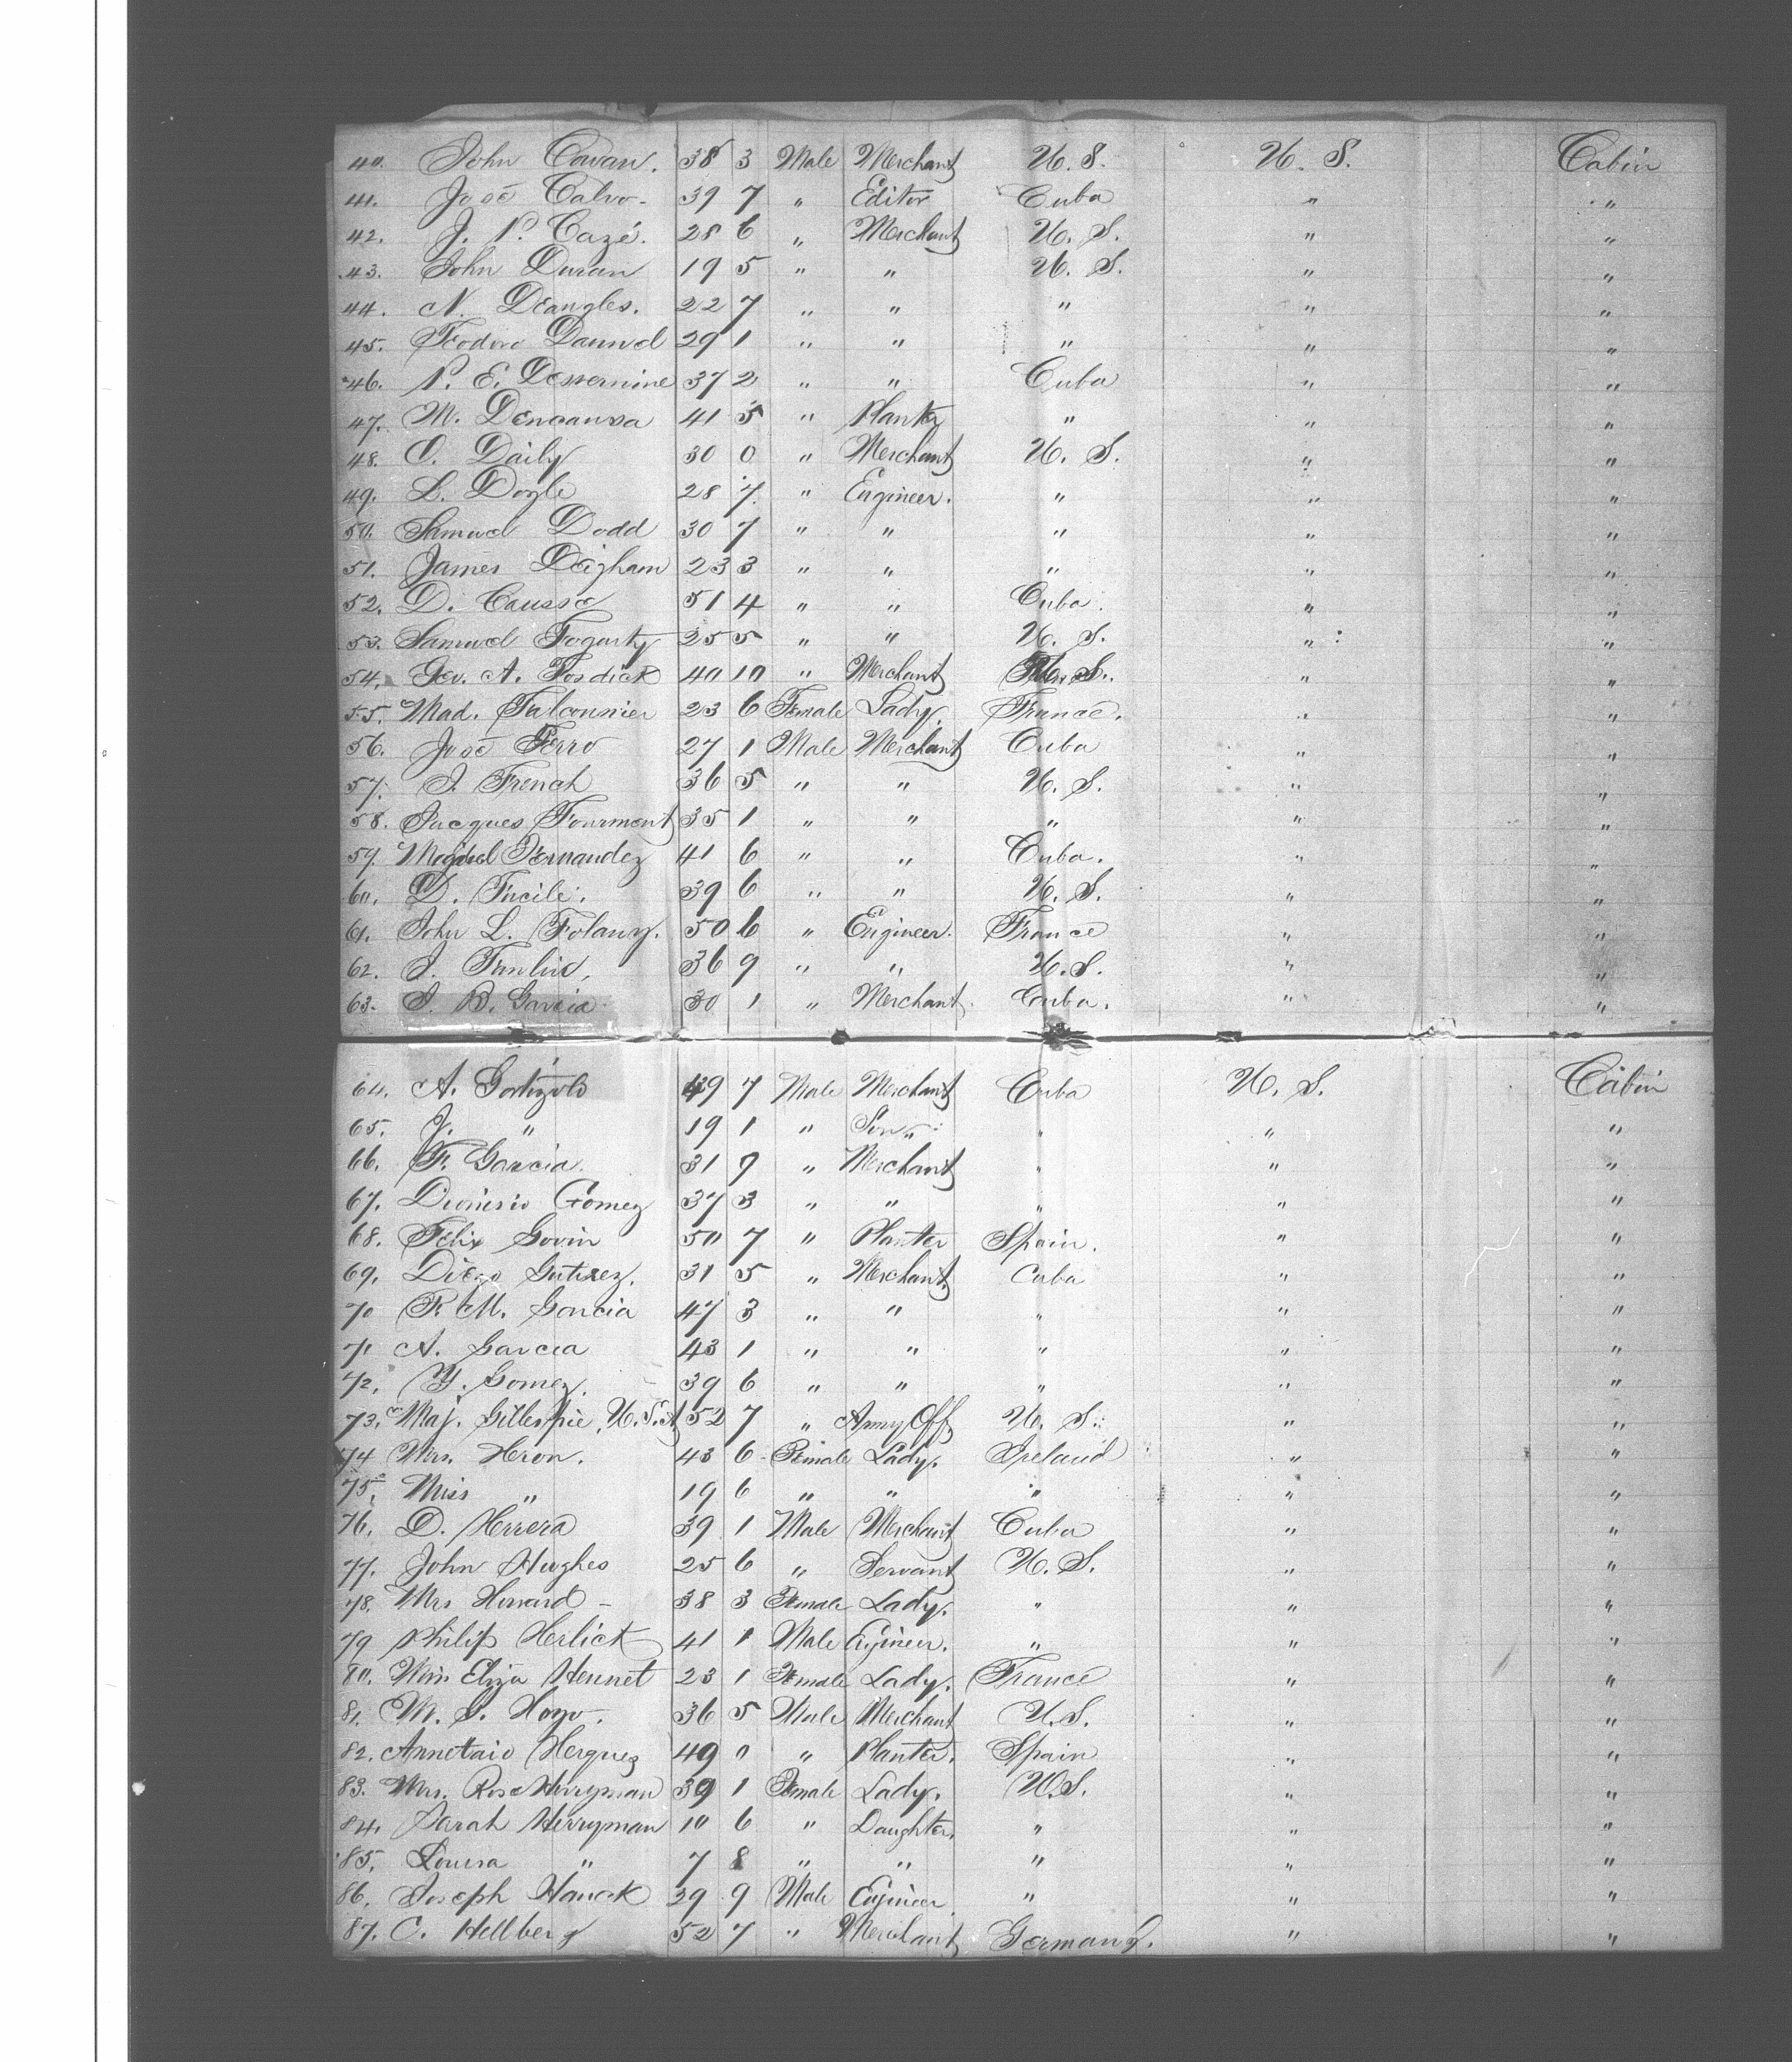 40. John Cowan. 38 3 Male Merchant U. S. U. S. Cabin
41. José Calvo - 39 7 " Editor Cuba " "
42. J. P. Cazé. 28 6 " Merchant U. S. " "
43. John Duran 19 5 " " U. S. " "
44. N. Deangles. 22 7 " " " " "
45. Teodoro 29 1 " " " " "
46. P. E. Dessernine 37 2 " " Cuba " "
47. M. Dencausa 41 5 " Planter " " "
48. O. Daily 30 0 " Merchant U. S. " "
49. L. Doyle 28 7. " Engineer. " " "
50. Samuel Dodd 30 7 " " " " "
51. James Deigham 23 3 " " " " "
52. D. Causse 51 4 " " Cuba. " "
53. Samuel Fogarty 25 5 " " U. S. " "
54. Geo. A. Fosdick 40 10 " Merchant U. S. " "
55. Mad. Falconnier 23 6 Female Lady. France. " "
56. José Ferro 27 1 Male Merchant Cuba " "
57. J. French 36 5 " " U. S. " "
58. Jacques Fourment 35 1 " " " " "
59. Miguel Fernandez 41 6 " " Cuba. " "
60. D. Fucile. 39 6 " " U. S. " "
61. John L. Folany. 50 6 " Engineer. France " "
62. J. 36 9 " " U. S. " "
63. J. B. Garcia 30 1 " Merchant. Cuba. " "
64. A. 49 7 Male Merchant Cuba U. S. Cabin
65. J. " 19 1 " Son " " "
66. F. Garcia. 31 7 " Merchant " " "
67. Dionisio Gomez 37 3 " " " " "
68. Felix Govin 50 7 " Planter Spain. " "
69. Diego Gutirez. 31 5 " Merchant. Cuba " "
70 F. M. Garcia 47 3 " " " " "
71 A. Garcia 43 1 " " " " "
72. Y. Gomez. 39 6 " " " " "
73. Maj. Gillespie, U.S.A 52 7 " Army Off. U. S. " "
74 Mrs. Heron. 43 6 Female Lady. Ireland " "
75. Miss " 19 6 " " " " "
76. D. Herrera 39 1 Male Merchant Cuba " "
77. John Hughes 25 6 " Servant U. S. " "
78. Mrs Howard - 38 3 Female Lady. " " "
79 Philip Herlick 41 1 Male Engineer. " " "
80. Miss Eliza Hennet 23 1 Female Lady. France " "
81. M. S. Hoyo. 36 5 Male Merchant U. S. " "
82. Annetaio Herquez 49 0 " Planter. Spain " "
83. Mrs. Rose Herryman 39 1 Female Lady. U.S. " "
84. Sarah Herryman 10 6 " Daughter. " " "
85. Louisa " 7 8 " " " " "
86. Joseph Hauck 29 9 Male Engineer " " "
87. C. Hellberg 52 7 " Merchant Germany. " "